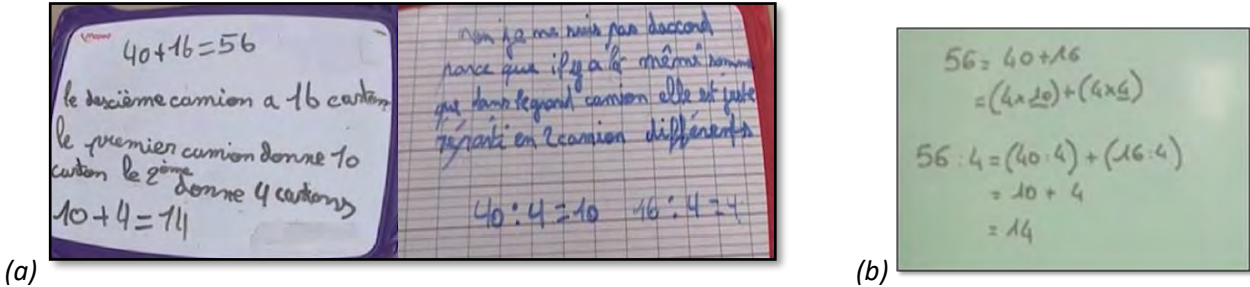 Maped
40+16=56
le descième camion a 16 cartons
le premier camion donne 10
carton le 2ème donne 4 cartons
10+4=14
non je me suis pas daccord
parce que il y a la même somme
que dans le grand camion elle est juste
réparti en 2 camion différents
40:4=10 16:4=4
(a)
56 = 40+16
=(4×10)+(4×4)
56:4=(40:4)+(16:4)
= 10 + 4
= 14
(b)